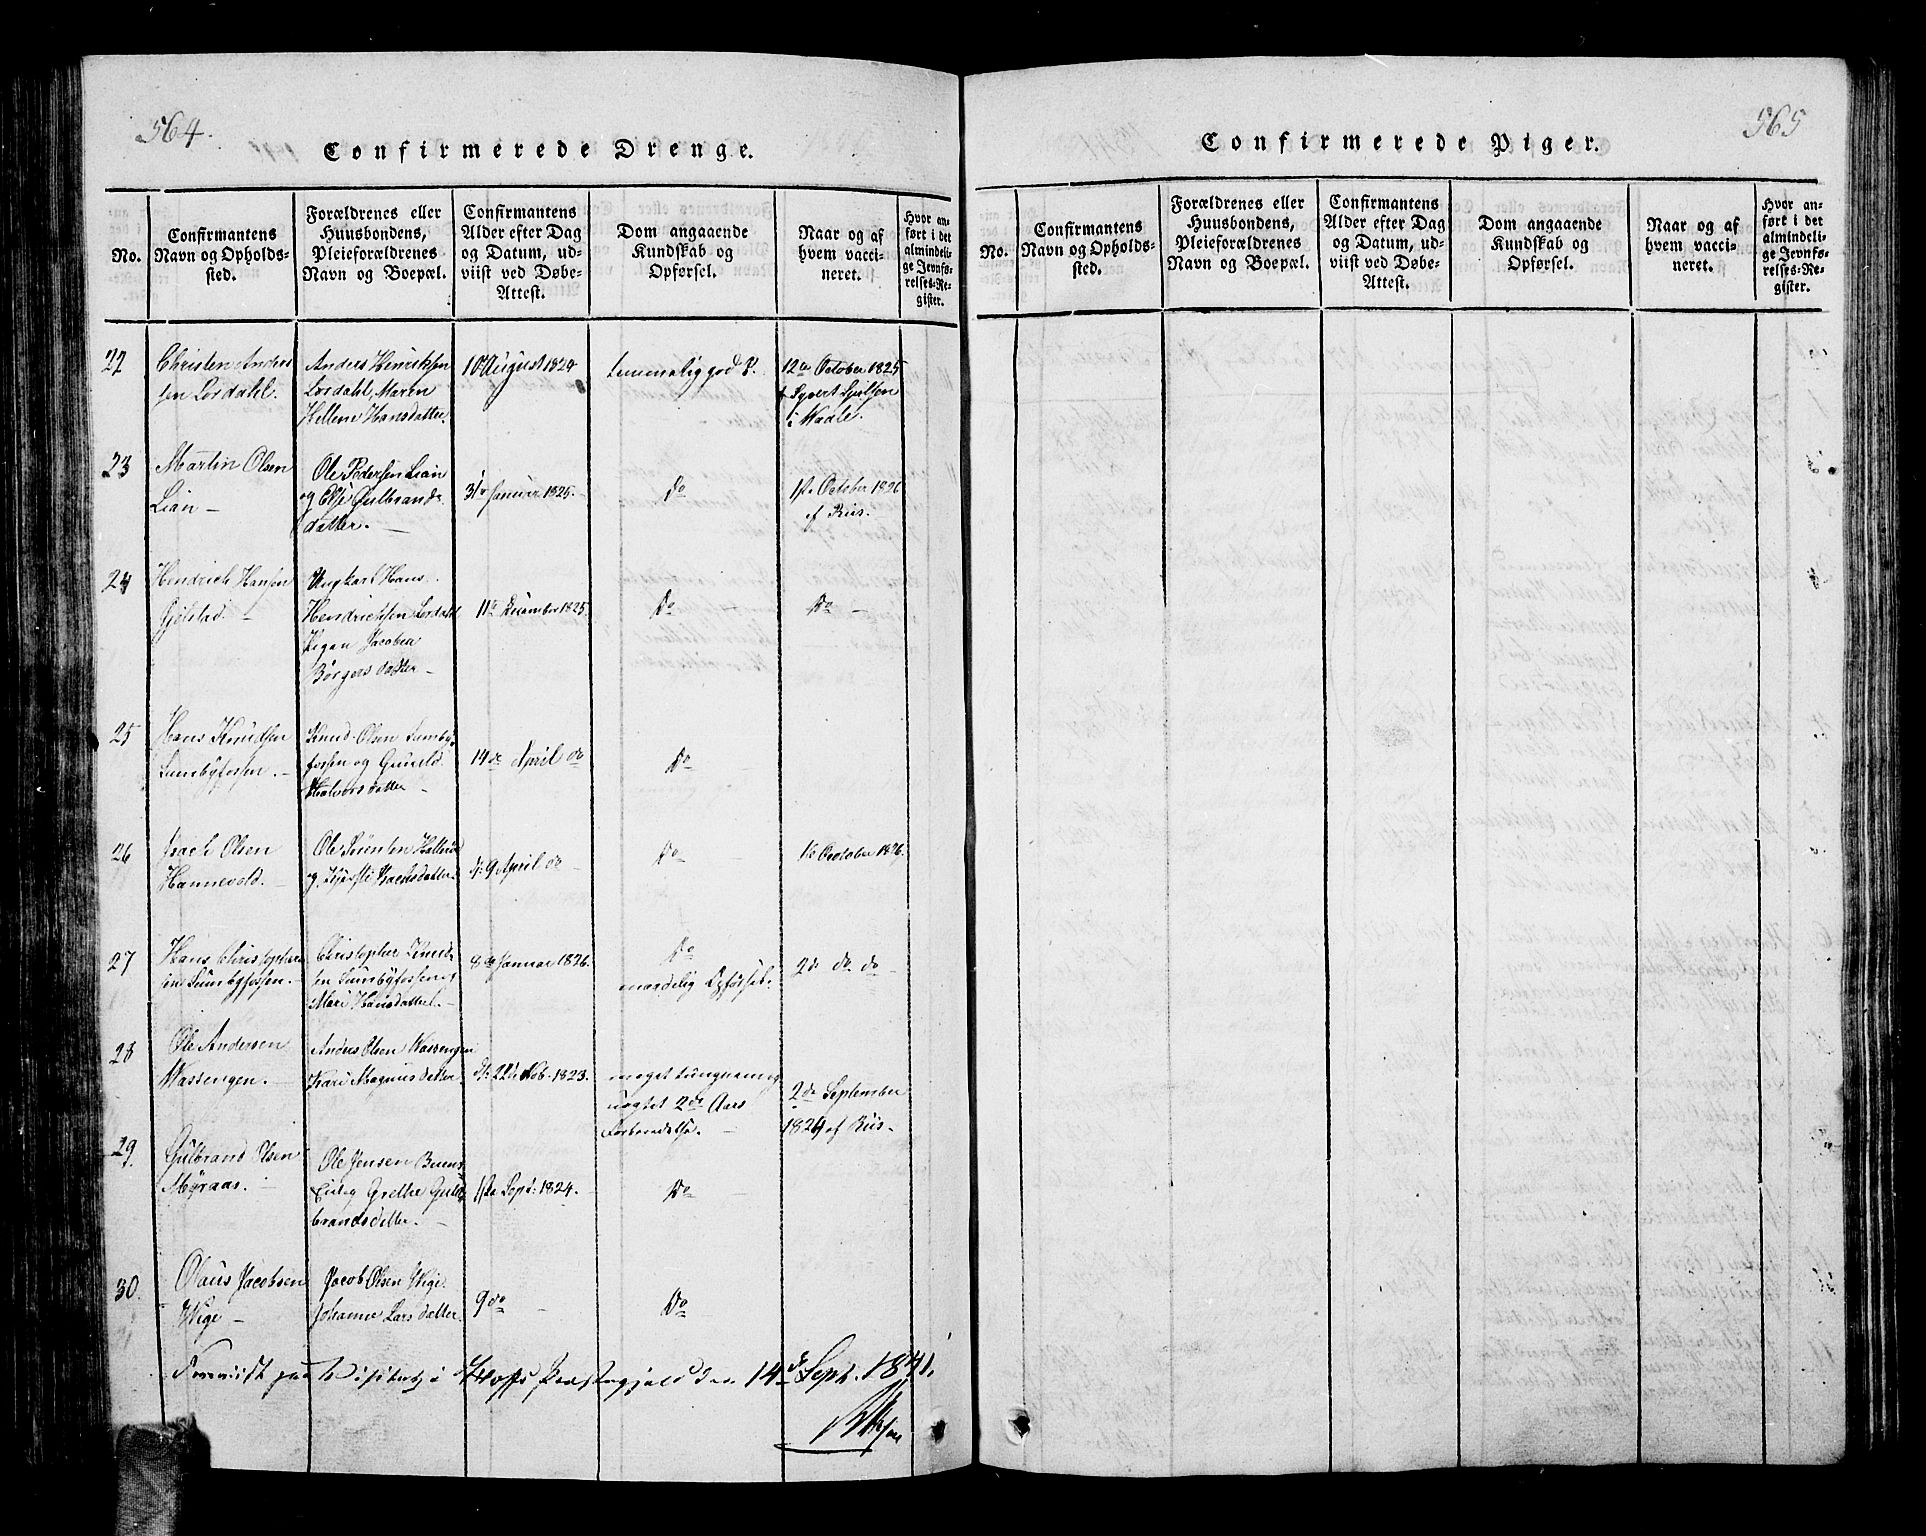 564.
Confirmerede Drenge.
No.
Confirmantens
Navn og Opholds-
sted.
Forældrenes eller
Huusbondens,
Pleieforældrenes
Navn og Boepæl.
Confirmantens
Alder efter Dag
og Datum, ud-
viist ved Døbe-
Attest.
Dom angaaende
Kundskab og
Opførsel.
Naar og af
hvem vacci-
neret.
Hvor an-
ført i det
almindeli-
ge Jevnfø-
relses-Re-
gister.
22
Christen Anders
sen Lordahl.
Anders Henriksen
Lordahl, Maren
Hellene Hansdatter
10 August 1824
temmelig god
12te October 1825
i Waale.
23
Martin Olsen
Lian
Ole Pedersen Lian
og Else Gulbrands
datter.
31te Januar 1825.
Do
1ste October 1826
af Riis.
24
Hendrich Hansen
Gjølstad.
Ungkarl Hans
Hendrichsen Lordahl
Pigen Jacobea
Børgersdatter
11te December 1825.
Do
Do
25
Hans Knudsen
Sundbyfossen.
Knud Olsen Sundby
fossen og Gunild
Halvorsdatter
14de April do
Do
26
Isach Olsen
Hannevold.
Ole Sørensen
og Kjersti Isachsdatter
d: 9 April do
Do
October 1826.
27
Hans Christophers
sen Sundbyfossen.
Christopher Knud
sen Sundbyfossen og
Mari Hansdatter.
8de Januar 1826.
Do
maadelig Opførsel.
2de do. do
28
Ole Andersen
Wassengen.
Anders Olsen Wassengen
Kari Magnusdatter
d: 22de Nob. 1823.
meget tungnæmmig
uagtet 2de Aars
Forberedelse.
2de September
1824 af Riis.
29
Gulbrand Olsen
Myraas.
Ole Jensen
Grethe Guld
brandsdatter
Sept: 1824.
Do
30.
Olaus Jacobsen
Wige
Jacob Olsen Wige
Johanne Larsdatter
9 do
Do
Foreviist paa Visitats i Hoffs Præstegjeld den 14de Sept. 1841.
565
Confirmerede Piger.
No.
Confirmantens
Navn og Opholds-
sted.
Forældrenes eller
Huusbondens,
Pleieforældrenes
Navn og Boepæl.
Confirmantens
Alder efter Dag
og Datum, ud-
viist ved Døbe-
Attest.
Dom angaaende
Kundskab og
Opførsel.
Naar og af
hvem vacci-
neret.
Hvor an-
ført i det
almindeli-
ge Jevnfø-
relses-Re-
gister.